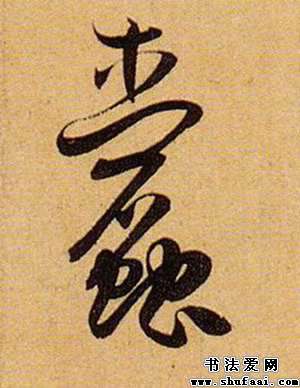 蠹
书法爱网
www.shufaai.com